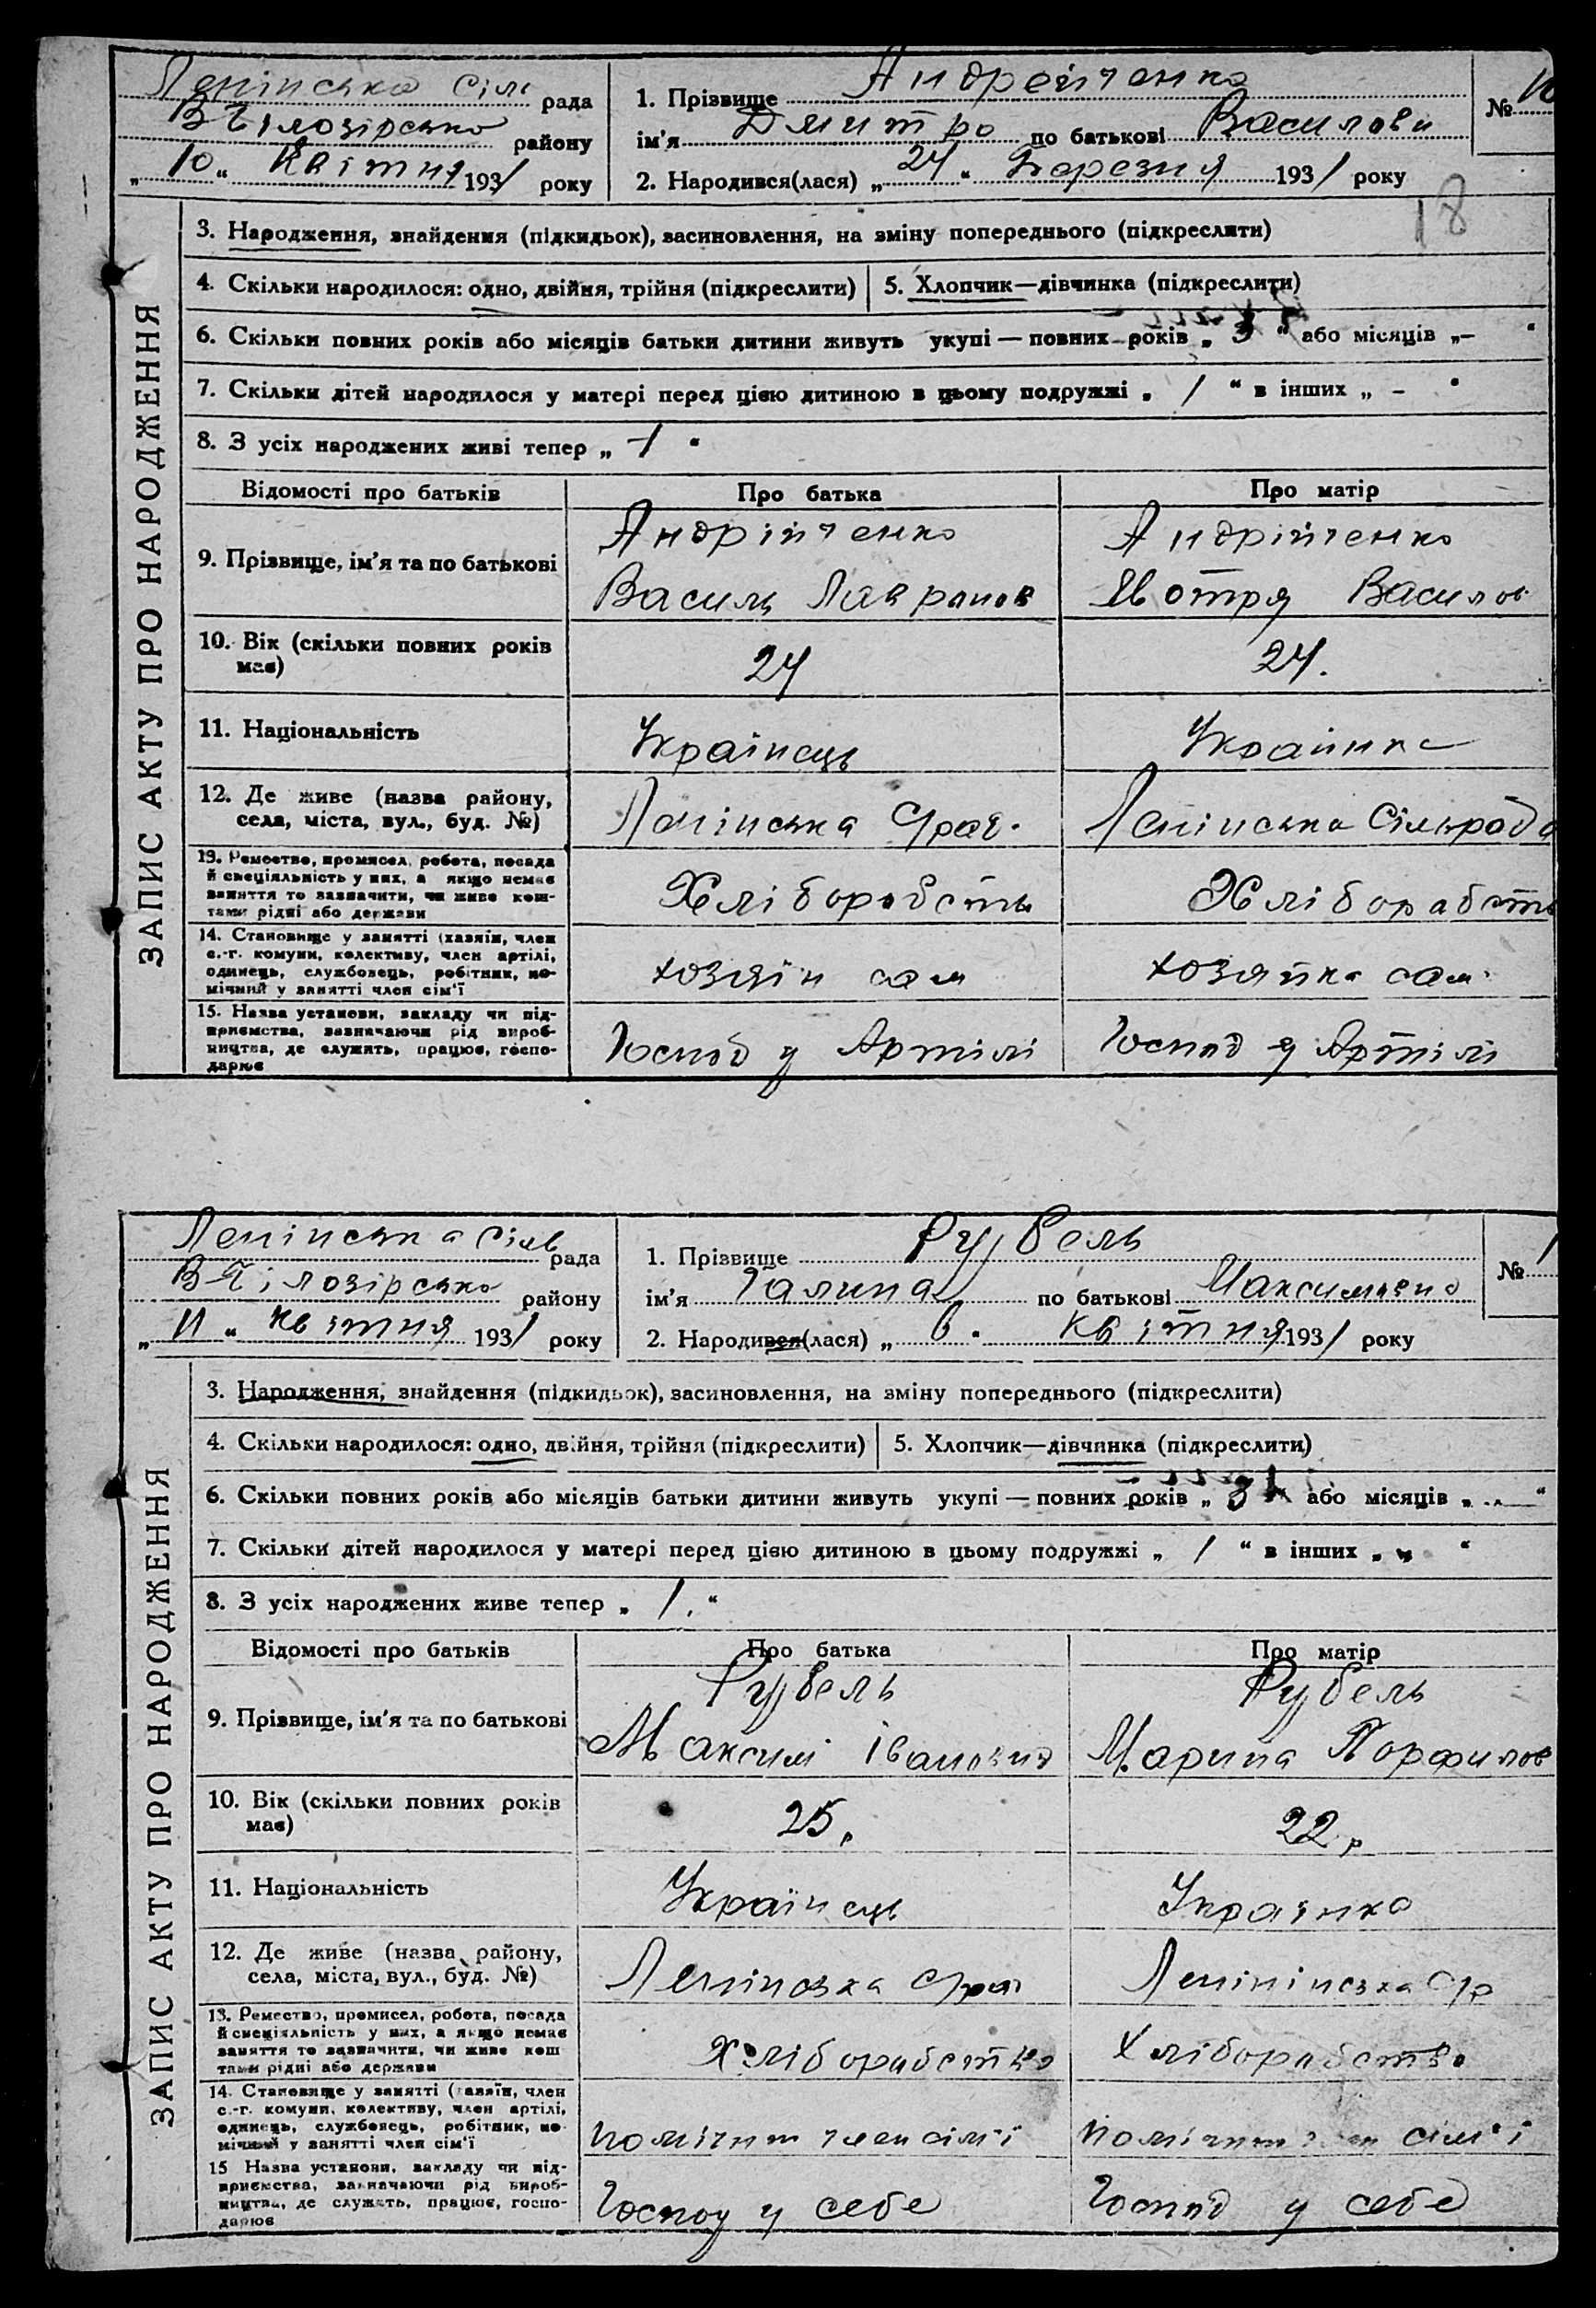 Ленінська Сіль рада
В Білозірсько району
„ 10 “ Квітня 1931 року
1. Прізвище Андрейченко
ім'я Дмитро по батькові Василови
2. Народився(лася) „ 24 “ Березня 1931 року
№ 10
18
ЗАПИС АКТУ ПРО НАРОДЖЕННЯ
3. Народження, знайдення (підкидьок), засиновлення, на зміну попереднього (підкреслити)
4. Скільки народилося: одно, двійня, трійня (підкреслити)
5. Хлопчик—дівчинка (підкреслити)
6. Скільки повних років або місяців батьки дитини живуть укупі — повних років „ 3 “ або місяців „ – “
7. Скільки дітей народилося у матері перед цією дитиною в цьому подружжі „ 1 “ в інших „ – “
8. З усіх народжених живі тепер „ 1 “
Відомості про батьків Про батька Про матір
9. Прізвище, ім'я та по батькові
Андрійченко
Василь Лавранов
Андрійченко
Мотря Василов
10. Вік (скільки повних років має)
24
24.
11. Національність
Українець
Украинка
12. Де живе (назва району,
села, міста, вул., буд. №)
Ленінська Срад.
Ленінська Сільрада
13. Ремество, промисел, робота, посада
й спеціяльність у них, а якщо немає
заняття то зазначити, чи живе кош-
тами рідні або держави
Хліборобств
Хлiборабств
14. Становище у занятті (хазяїн, член
с.-г. комуни, колективу, член артілі,
одинець, службовець, робітник, по-
мічний у занятті член сім'ї
хозяін сам
хозяйка сам
15. Назва установи, закладу чи під-
приємства, зазначаючи рід вироб-
ництва, де служить, працює, госпо-
дарює
Господ у Артілі
Господ у Артілі
Ленінська Сіль рада
В Білозірсько району
„ 11 “ Квітня 1931 року
1. Прізвище Рубель
ім'я Галина по батькові Максимівно
2. Народився(лася) „ 6 “ Квітня 1931 року
№ 1
ЗАПИС АКТУ ПРО НАРОДЖЕННЯ
3. Народження, знайдення (підкидьок), засиновлення, на зміну попереднього (підкреслити)
4. Скільки народилося: одно, двійня, трійня (підкреслити)
5. Хлопчик—дівчинка (підкреслити)
6. Скільки повних років або місяців батьки дитини живуть укупі — повних років „ 3 “ або місяців „ — “
7. Скільки дітей народилося у матері перед цією дитиною в цьому подружжі „ 1 “ в інших „ “
8. З усіх народжених живе тепер „ 1. “
Відомості про батьків Про батька Про матір
9. Прізвище, ім'я та по батькові
Рубель
Максим Іванович
Рубель
Марина Порфилов
10. Вік (скільки повних років має)
25р
22р
11. Національність
Українець
Українка
12. Де живе (назва району,
села, міста, вул., буд. №)
Ленінська Срад
Ленінінська Ср
13. Ремество, промисел, робота, посада
й спеціяльність у них, а якщо немає
заняття то зазначити, чи живе кош
тами рідні або держави
Хліборабство
Хліборабство
14. Становище у занятті (хазяїн, член
с.-г. комуни, колективу, член артілі,
одинець, службовець, робітник, по-
мічний у занятті член сім'ї
Помічни член сімʼї
Помічни сімʼї
15 Назва установи, закладу чи під-
приємства, зазначаючи рід вироб-
ництва, де служать, працює, госпо-
дарює
Господ у себе
Господ у себе